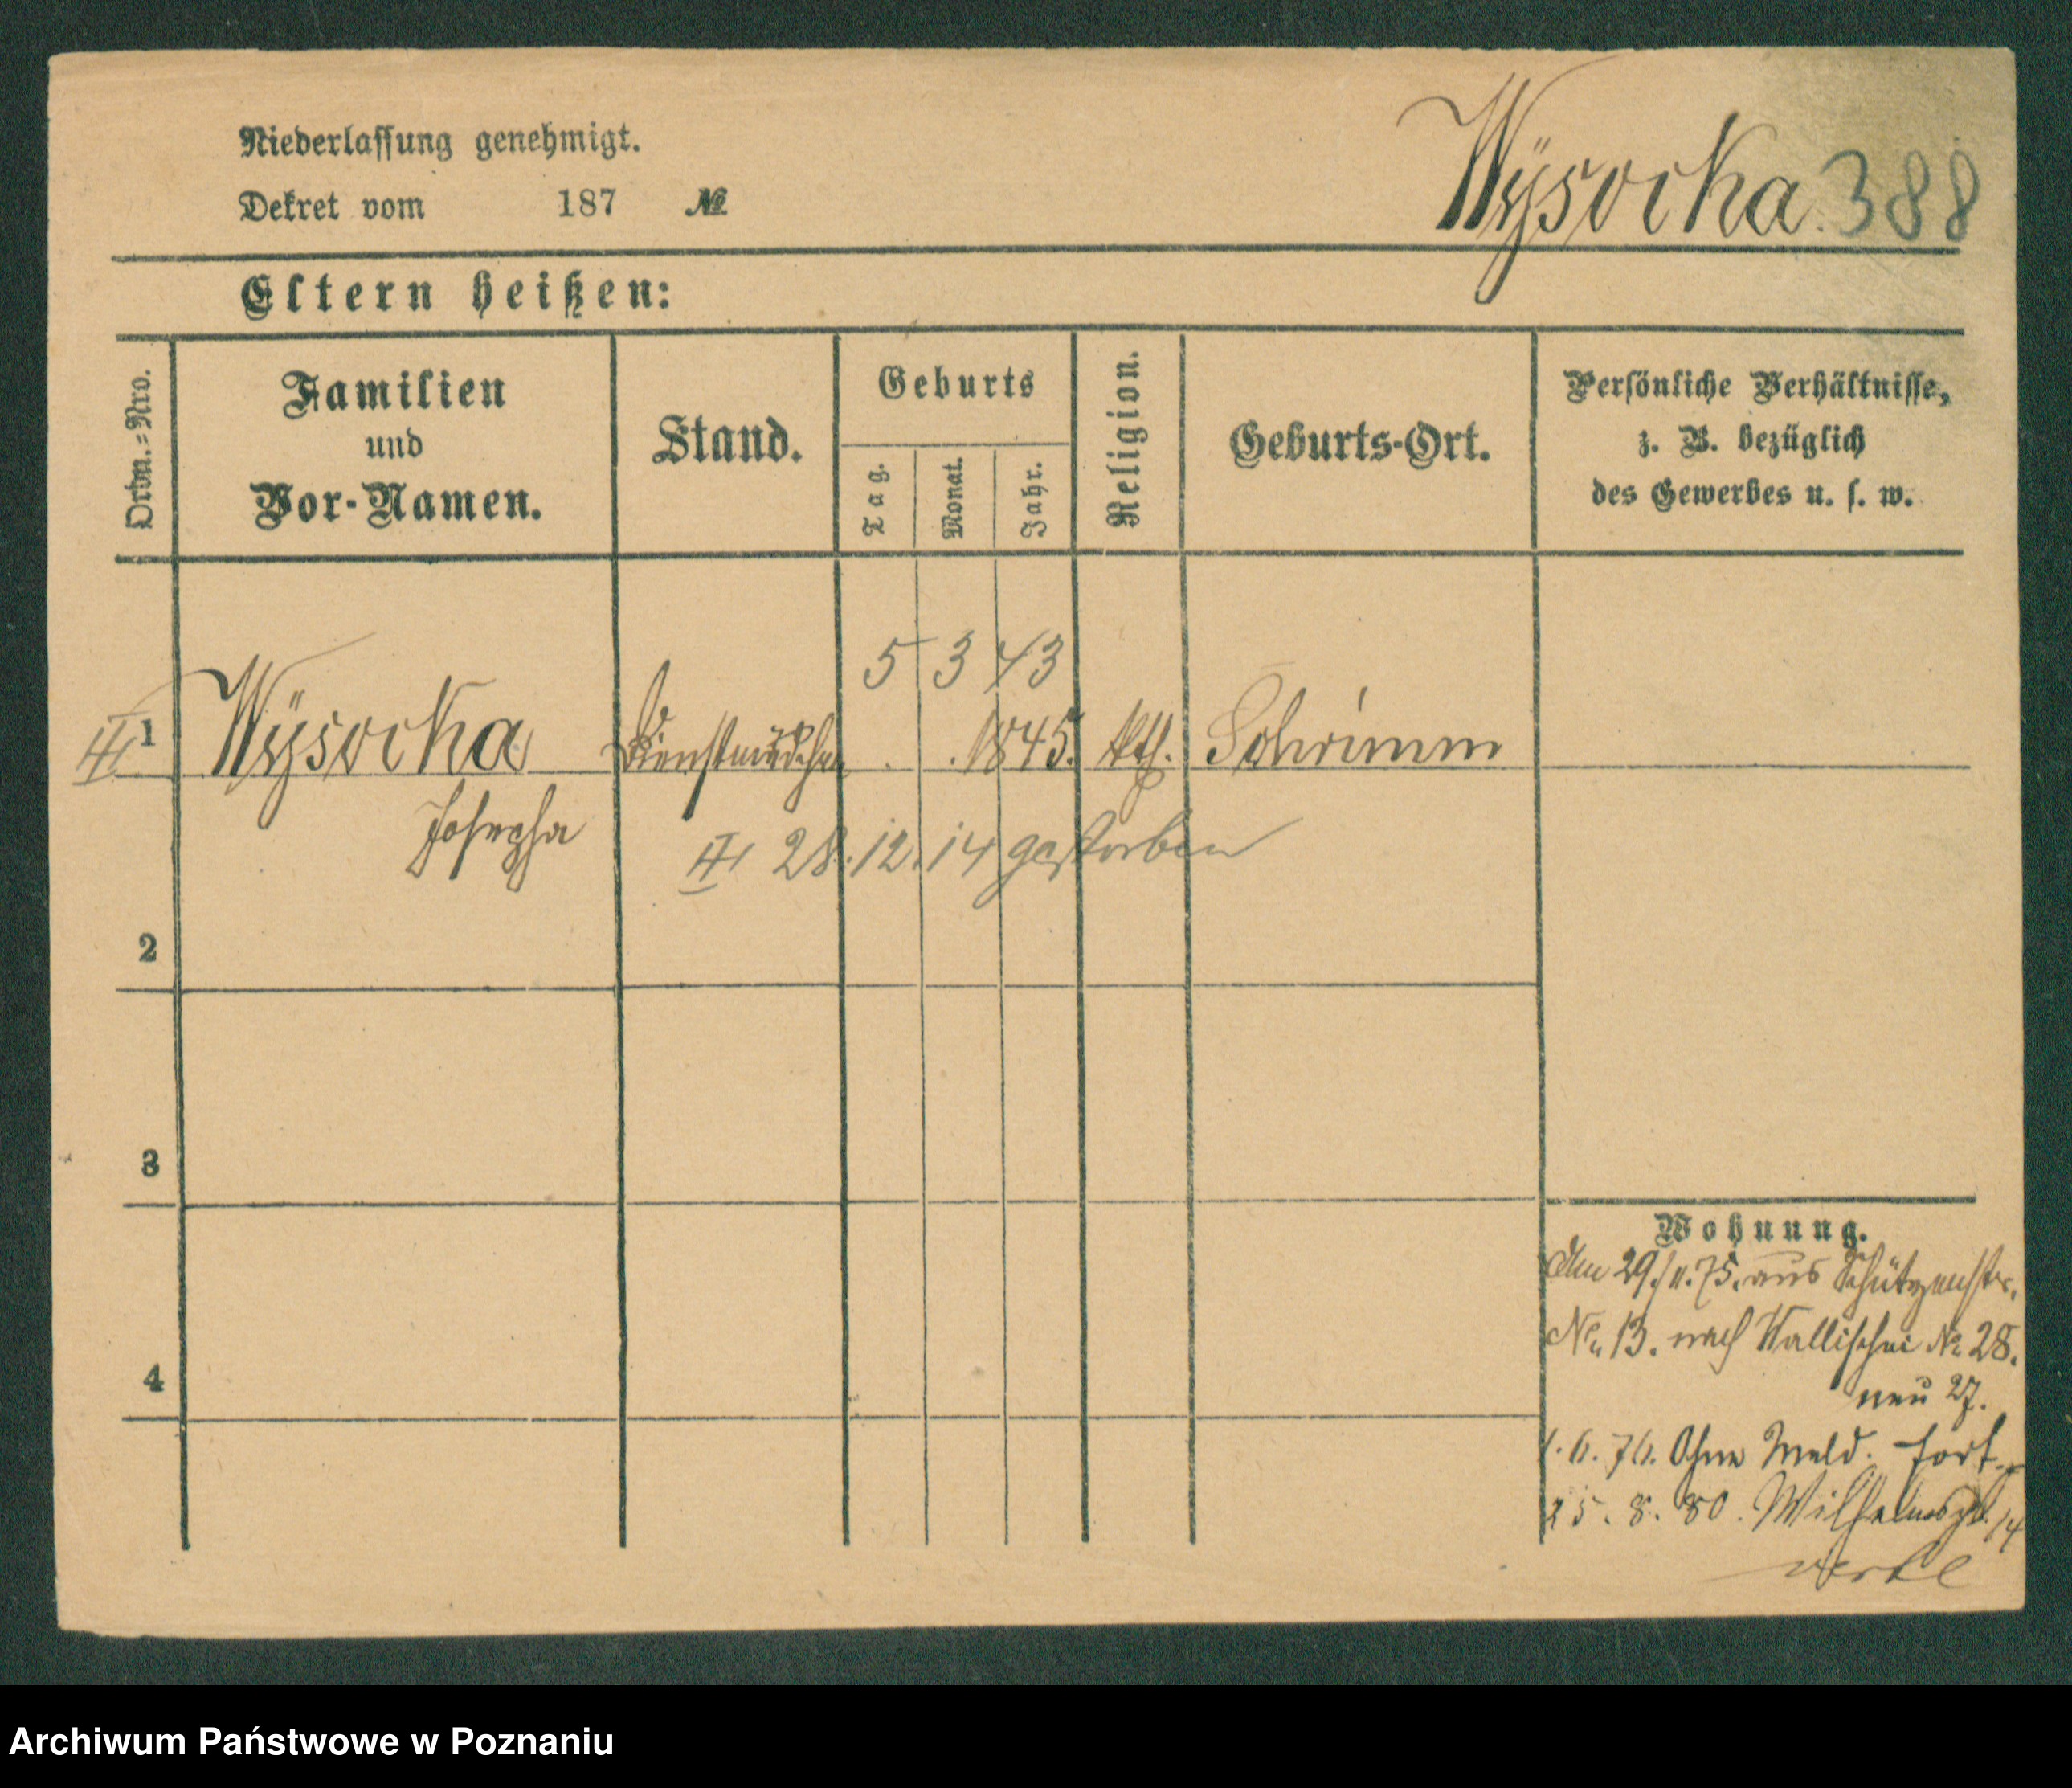 Niederlassung genehmigt.
Wysocka 388
Dekret vom 187 №
Eltern heißen:
Ordn.=Nro.
Familien
und
Vor-Namen.
Stand.
Geburts
Tag.
Monat.
Jahr.
Religion.
Geburts-Ort.
Persönliche Verhältnisse,
z. B. bezüglich
des Gewerbes u. s. w.
5 3 43
1 Wÿsocka Dienstmädchen . . 1845. kth. Schrimm
Josepha
28.12.14 gestorben
2
3
4
Wohnung.
Am 29./11.75. aus Schützenstr.
No 13. nach Wallischei No 28.
neu 27.
1.6.76. Ohne Meld. fort.
25.8.80. Wilhelmspl. 14